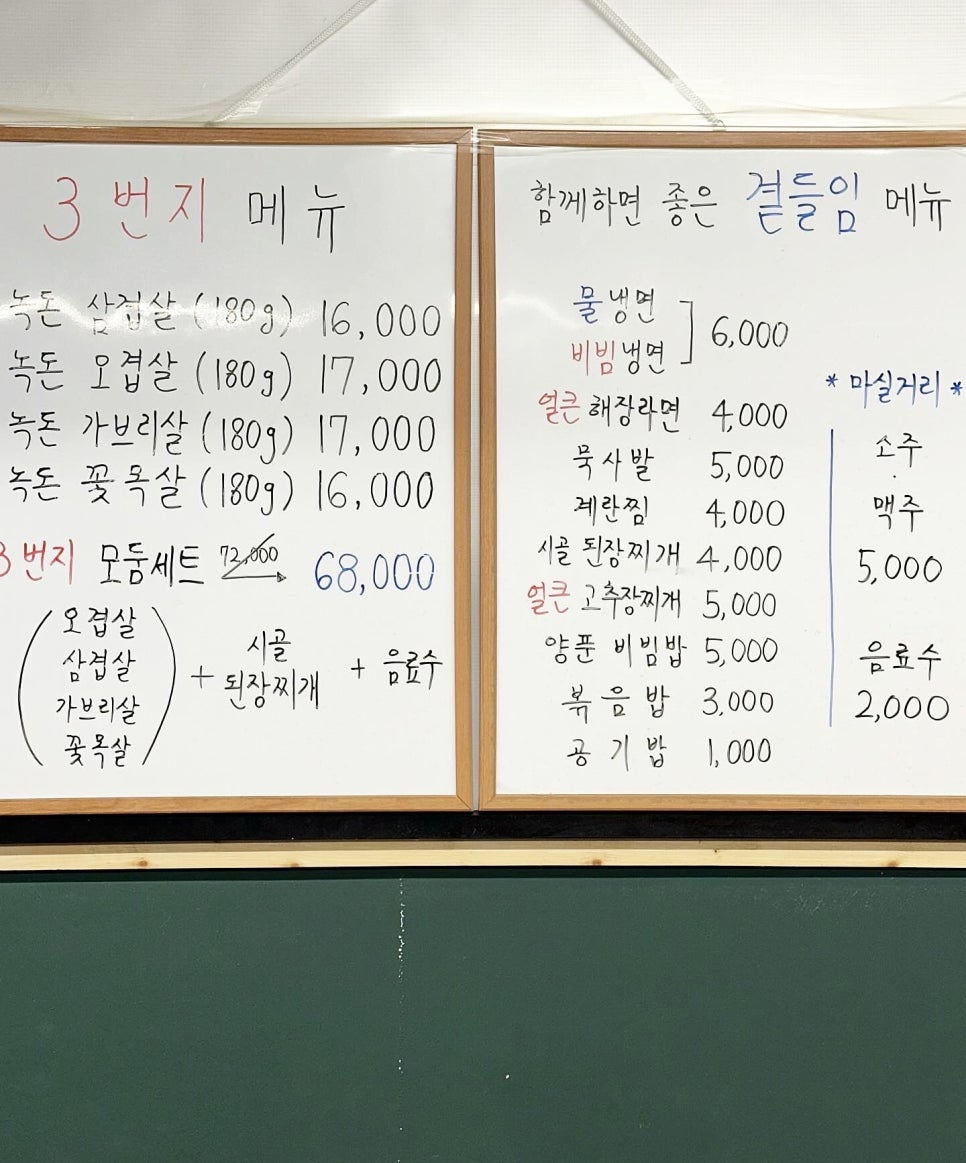 3번지 메뉴
녹돈 삼겹살 (180g) 16,000
녹돈 오겹살 (180g) 17,000
녹돈 가브리살 (180g) 17,000
녹돈 꽃목살 (180g) 16,000
3번지 모둠세트 72,000 68,000
오겹살
삼겹살
가브리살
꽃목살
+ 시골
된장찌개
+ 음료수
함께하면 좋은 곁들임 메뉴
물냉면
비빔냉면
6,000
얼큰 해장라면 4,000
묵사발 5,000
계란찜 4,000
시골 된장찌개 4,000
얼큰 고추장찌개 5,000
양푼 비빔밥 5,000
볶음밥 3,000
공기밥 1,000
* 마실거리 *
소주
·
맥주
5,000
음료수
2,000